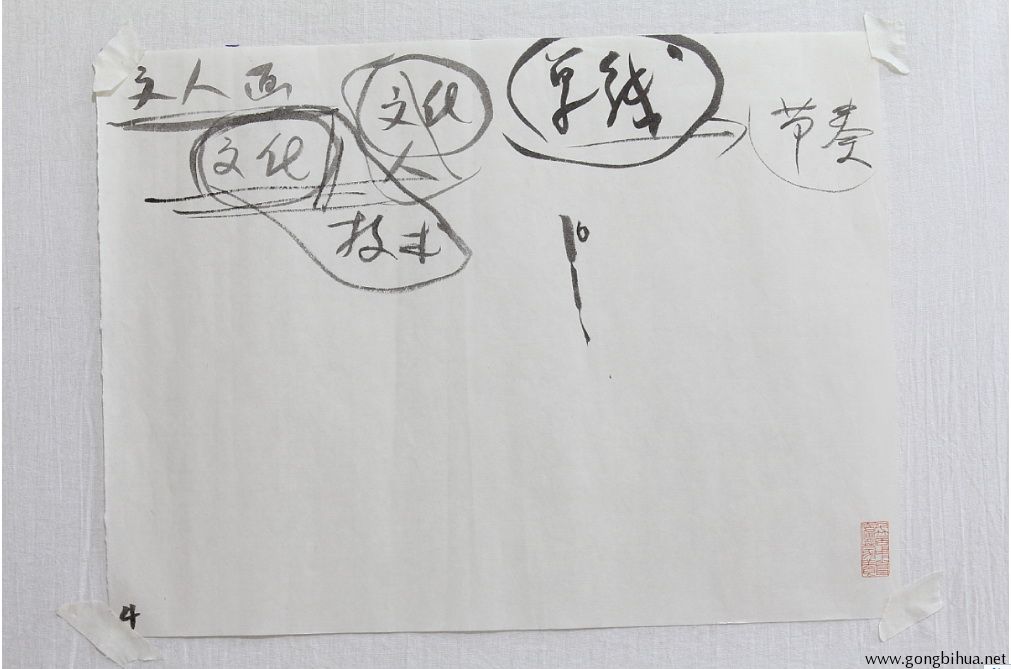 文人画
文化
文化
人
技术
单线
节奏
4
www.gongbihua.net